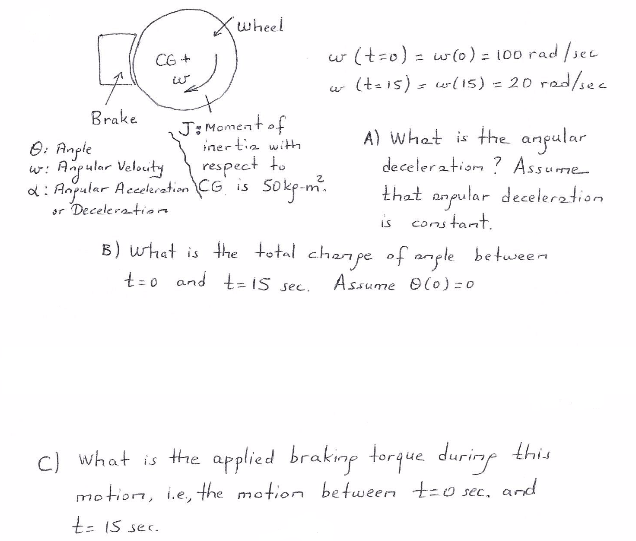 Wheel
CG +
ω
Brake
ω (t=0) = ω(0) = 100 rad/sec
ω (t=15) = ω(15) = 20 rad/sec
J: Moment of
inertia with
respect to
CG is 50 kg-m².
θ: Angle
ω: Angular Velocity
α: Angular Acceleration
or Deceleration
A) What is the angular
deceleration? Assume
that angular deceleration
is constant.
B) What is the total change of angle between
t=0 and t=15 sec. Assume θ(0)=0
C) What is the applied braking torque during this
motion, i.e., the motion between t=0 sec. and
t= 15 sec.